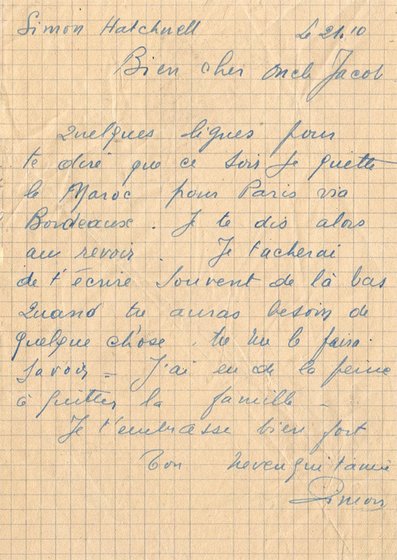 Simon Hatchwell Le 21.10
Bien cher oncle Jacob
Quelques lignes pour
te dire que ce soir je quitte
le Maroc pour Paris via
Bordeaux. Je te dis alors
au revoir. Je tacherai
de t'écrire souvent de là bas
Quand tu auras besoin de
quelque chose. tu me le feras
savoir = J'ai eu de la peine
à quitter la famille -
Je t'embrasse bien fort
Ton neveu qui t'aime
Simon